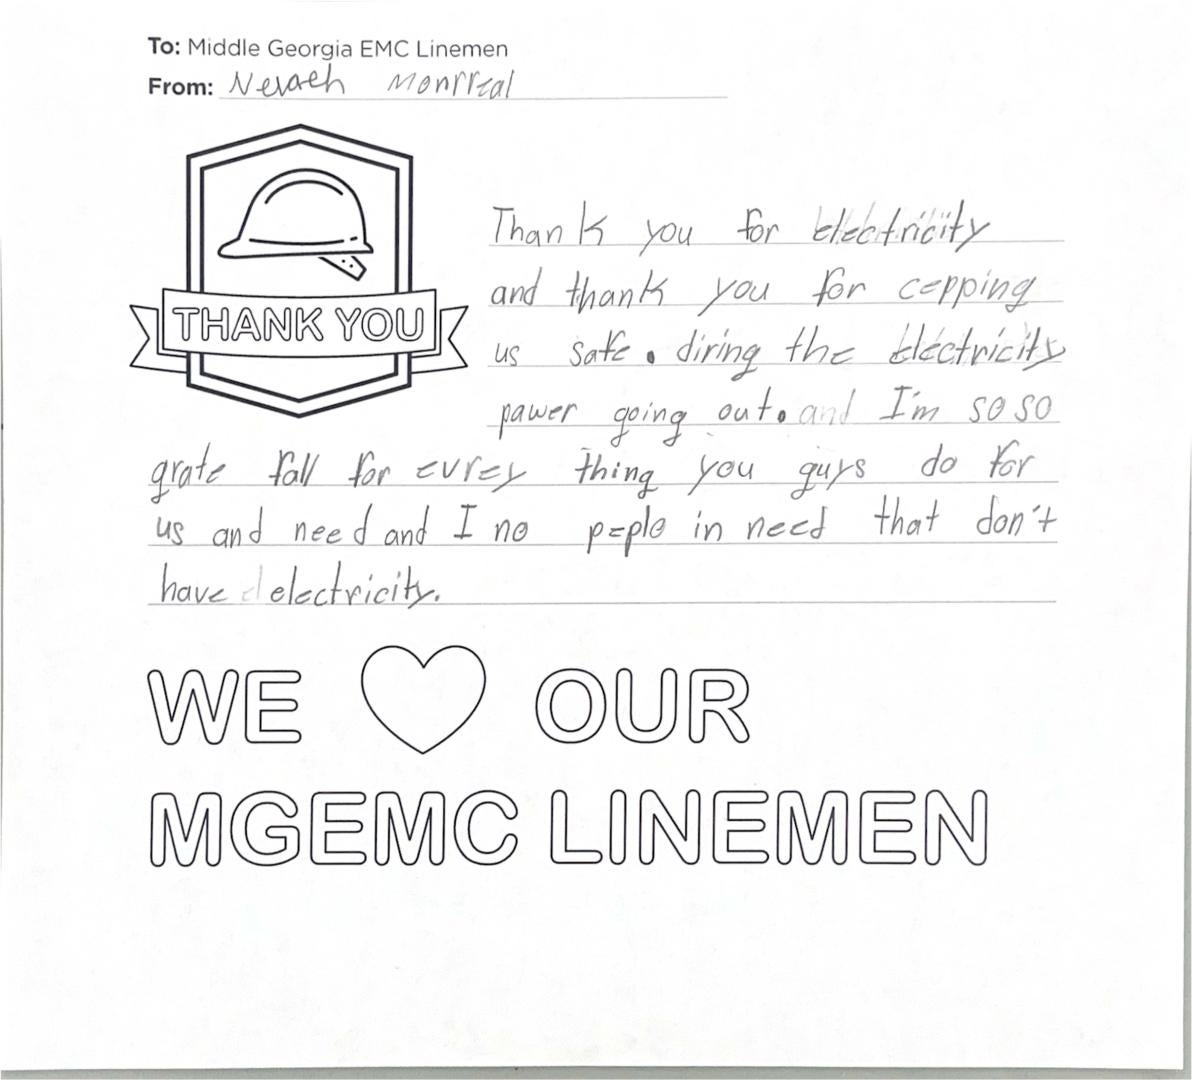 To: Middle Georgia EMC Linemen
From: Nevaeh Monrreal
THANK YOU
Thank you for electricity
and thank you for cepping
us safe. diring the electricity
pawer going out. and I'm so so
grate fall for evrey thing you guys do for
us and need and I no peple in need that don't
have electricity.
WE OUR
MGEMC LINEMEN